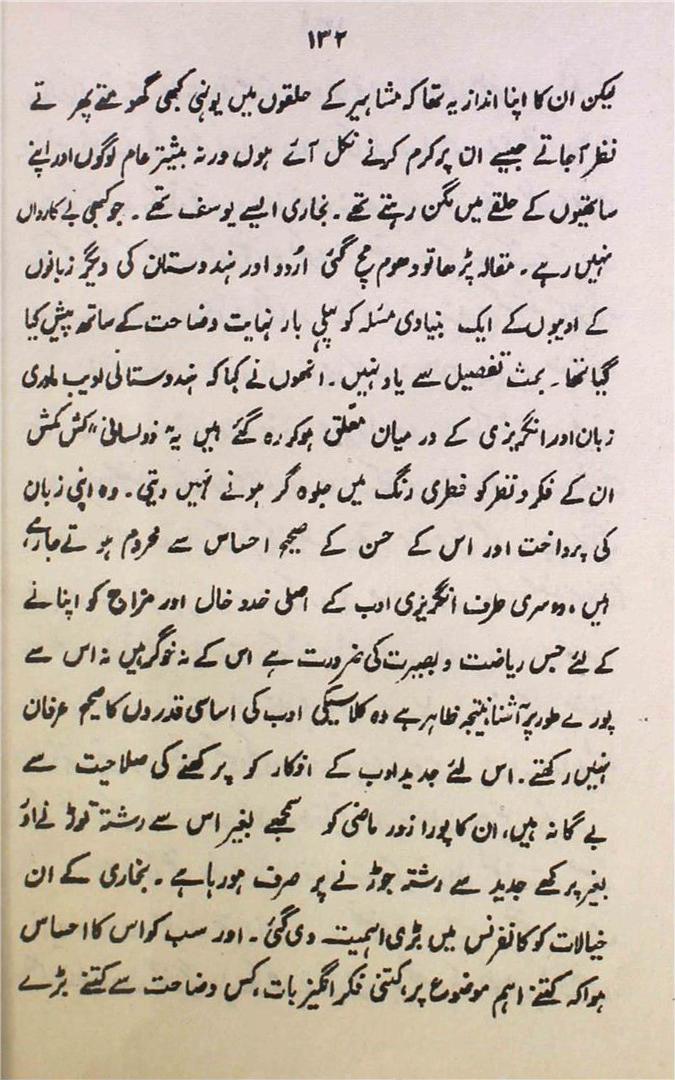 ۱۳۲
لیکن ان کا اپنا انداز یہ تھا کہ مشاہیر کے حلقوں میں یونہی کبھی گھومتے پھر تے
نظر آجاتے جیسے ان پر کرم کرنے نکل آئے ہوں ورنہ بیشتر عام لوگوں اور اپنے
ساتھیوں کے حلقے میں مگن رہتے تھے ۔ بخاری ایسے یوسف تھے ۔ جو کبھی بے کارواں
نہیں رہے ۔ مقالہ پڑھا تو دھوم مچ گئی اُردو اور ہندوستان کی دیگر زبانوں
کے ادیبوں کے ایک بنیادی مسئلہ کو پہلی بار نہایت وضاحت کے ساتھ پیش کیا
گیا تھا ۔ بحث تفصیل سے یاد نہیں ۔ انھوں نے کہا کہ ہندوستانی ادیب مادری
زبان اور انگریزی کے درمیان معلّق ہو کر رہ گئے ہیں یہ "ذو لسانی" کش مکش
ان کے فکر و نظر کو فطری رنگ میں جلوہ گر ہونے نہیں دیتی ۔ وہ اپنی زبان
کی پرداخت اور اس کے حسن کے صحیح احساس سے محروم ہو تے جارہے
ہیں، دوسری طرف انگریزی ادب کے اصلی خدو خال اور مزاج کو اپنانے
کے لئے جس ریاضت و بصیرت کی ضرورت ہے اس کے نہ خوگر ہیں نہ اس سے
پورے طور پر آشنا نتیجہ ظاہر ہے وہ کلاسیکی ادب کی اساسی قدروں کا صحیح عرفان
نہیں رکھتے ۔ اس لئے جدید ادب کے افکار کو پرکھنے کی صلاحیت سے
بے گانہ ہیں، ان کا پورا زور ماضی کو سمجھے بغیر اس سے رشتہ توڑنے اور
بغیر پرکھے جدید سے رشتہ جوڑنے پر صرف ہو رہا ہے ۔ بخاری کے ان
خیالات کو کانفرنس میں بڑی اہمیت دی گئی ۔ اور سب کو اس کا احساس
ہوا کہ کتنے اہم موضوع پر، کتنی فکر انگیز بات، کس وضاحت سے کتنے بڑے